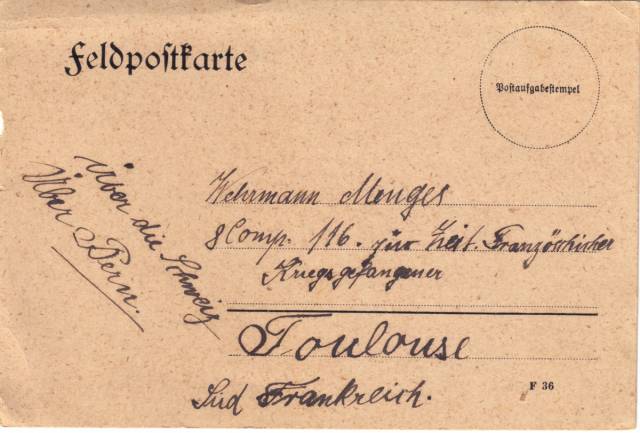 Feldpostkarte
Postaufgabestempel
Über die Schweiz
Über Bern.
Wehrmann Menges
8 Comp. 116. zur Zeit. Französischer
Kriegsgefangener
Toulouse
Süd Frankreich.
F 36